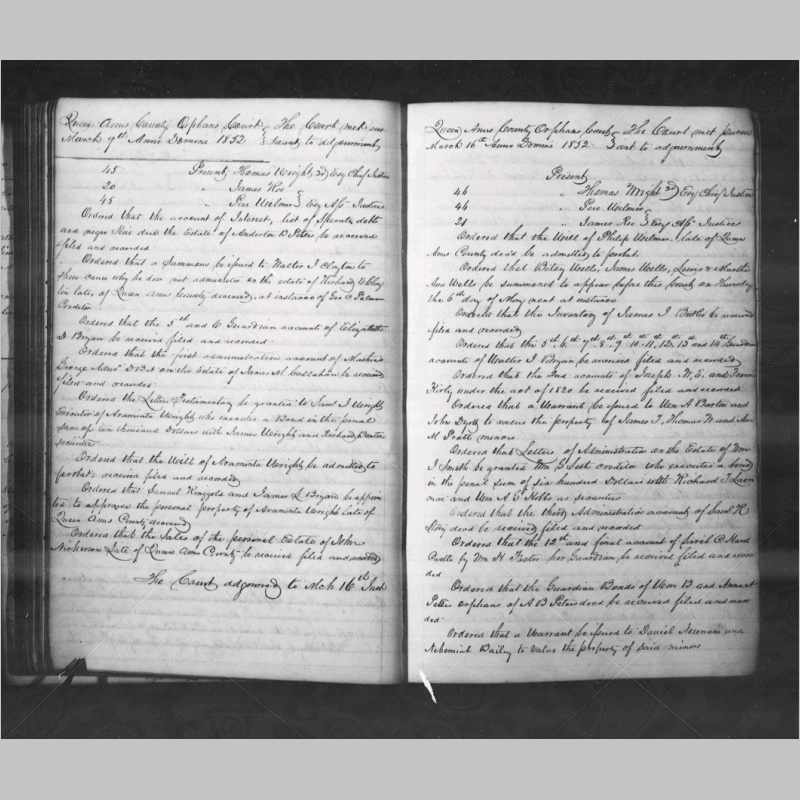 Queen Anns County Orphans Court } The Court met
March 9th Anno Domini 1852 } pursuant to adjournment
45 Present Thomas Wright 3d Esq Chief Justice
20 " James Roe
45 " Pere Wilmer } Esq Ass Justices
Ordered that the account of Interest, list of Sperate debts
and negro Hire due the Estate of Anderton B Peters be received
filed and recorded
Ordered that a Summons be issued to Walter J Clayton to
shew cause why he dose not administer on the estate of Richard E Clay
ton late of Queen Anns County deceased, at instance of Geo Palmer
Creditor
Ordered that the 5th and 6 Guardian account of Elizabeth
D. Bryan be received filed and recorded
Ordered that the first administration account of
George on the Estate of James M Callahan be received
filed and recorded
Ordered the Letters Testamentary be granted to Saml J Wright
Executor of Araminta Wright, who executes a Bond in the penal
sum of ten thousand Dollars with James Wright and Richard
securities
Ordered that the Will of Araminta Wright be admitted to
probat, received filed and recorded
Ordered that Samuel and James L Bryan be appoin
ted to appraise the personal property of Araminta Wright late of
Queen Anns County deceased
Ordered that the Sales of the personal Estate of John
Nickerson Late of Queen Anns County be received filed and recorded
The Court adjourned to Mch 16th Inst
Queen Anns County Orphans Court } The Court met pursu
March 16th Anno Domini 1852 } ant to adjournment
Present
46 " Thomas Wright 3d Esq Chief Justice
46 " Pere Wilmer
21 " James Roe } Esqs Ass Justices
Ordered that the Will of Philip Wilmer, late of Queen
Anns County decd be admitted to probat.
Ordered that Betsy Wells, James Wells, Louisa & Martha
Ann Wells be summoned to appear before this Court on Thursday
the 6th day of May next at instance
Ordered that the Inventory of James J Butler be received
filed and recorded
Ordered that the 5th, 6th, 7th, 8th, 9th, 10th, 11th, 12th, 13th and 14th Guardian
accounts of Walter J Bryan be received filed and recorded
Ordered that the 2nd accounts of Joseph W, E, and
Kirby under the act of 1820 be received filed and recorded
Ordered that a Warrant be issued to Wm A Barton and
John to value the property of James T, Thomas W and
M Pratt minors
Ordered that Letters of Administration on the Estate of Wm
J Smith be granted Wm G creditor who executes a bond
in the penal sum of six hundred Dollars with Richard T
and Wm A E Hobbs as securities
Ordered that the third Administration account of Saml H
decd be received filed and recorded
Ordered that the 12th and final account of Sarah C Hand
by Wm H Foster her Guardian be received filed and recor
ded
Ordered that the Guardian Bonds of Wm B and
Peters orphans of A B Peters decd be received filed and recor
ded
Ordered that a Warrant be issued to Daniel Newnam and
Nehemiah Bailey to value the property of said minors